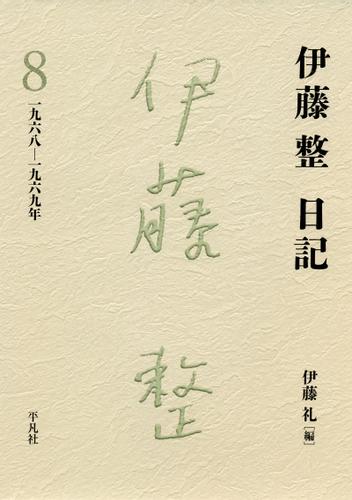 伊藤 整 日記
伊藤 礼［編］
伊藤整
8
一九六八―一九六九年
平凡社